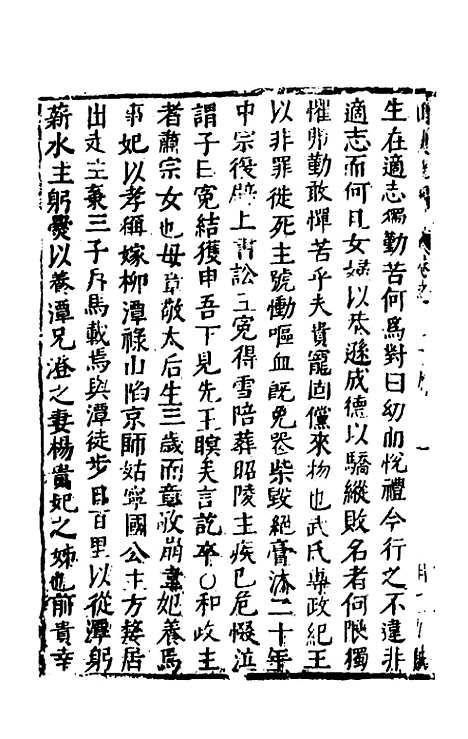 生在適志獨勤苦何爲對曰幼而悅禮今行之不違非
適志而何且女婦以恭遜成德以驕縱敗名者何限獨
懼弗勤敢憚苦乎夫貴寵固儻來物也武氏專政紀王
以非罪徙死主號慟嘔血旣免喪柴毀絕膏沐二十年
中宗復辟上書訟王冤得雪陪葬昭陵主疾已危惙泣
謂子曰冤結獲申吾下見先王瞑矣言訖卒○和政主
者肅宗女也母章敬太后生三歲而章敬崩韋妃養焉
事妃以孝稱嫁柳潭祿山陷京師姑寧國公主方嫠居
出走主棄三子斥馬載焉與潭徒步日百里以從潭躬
薪水主躬爨以養潭兄澄之妻楊貴妃之姊也前貴幸